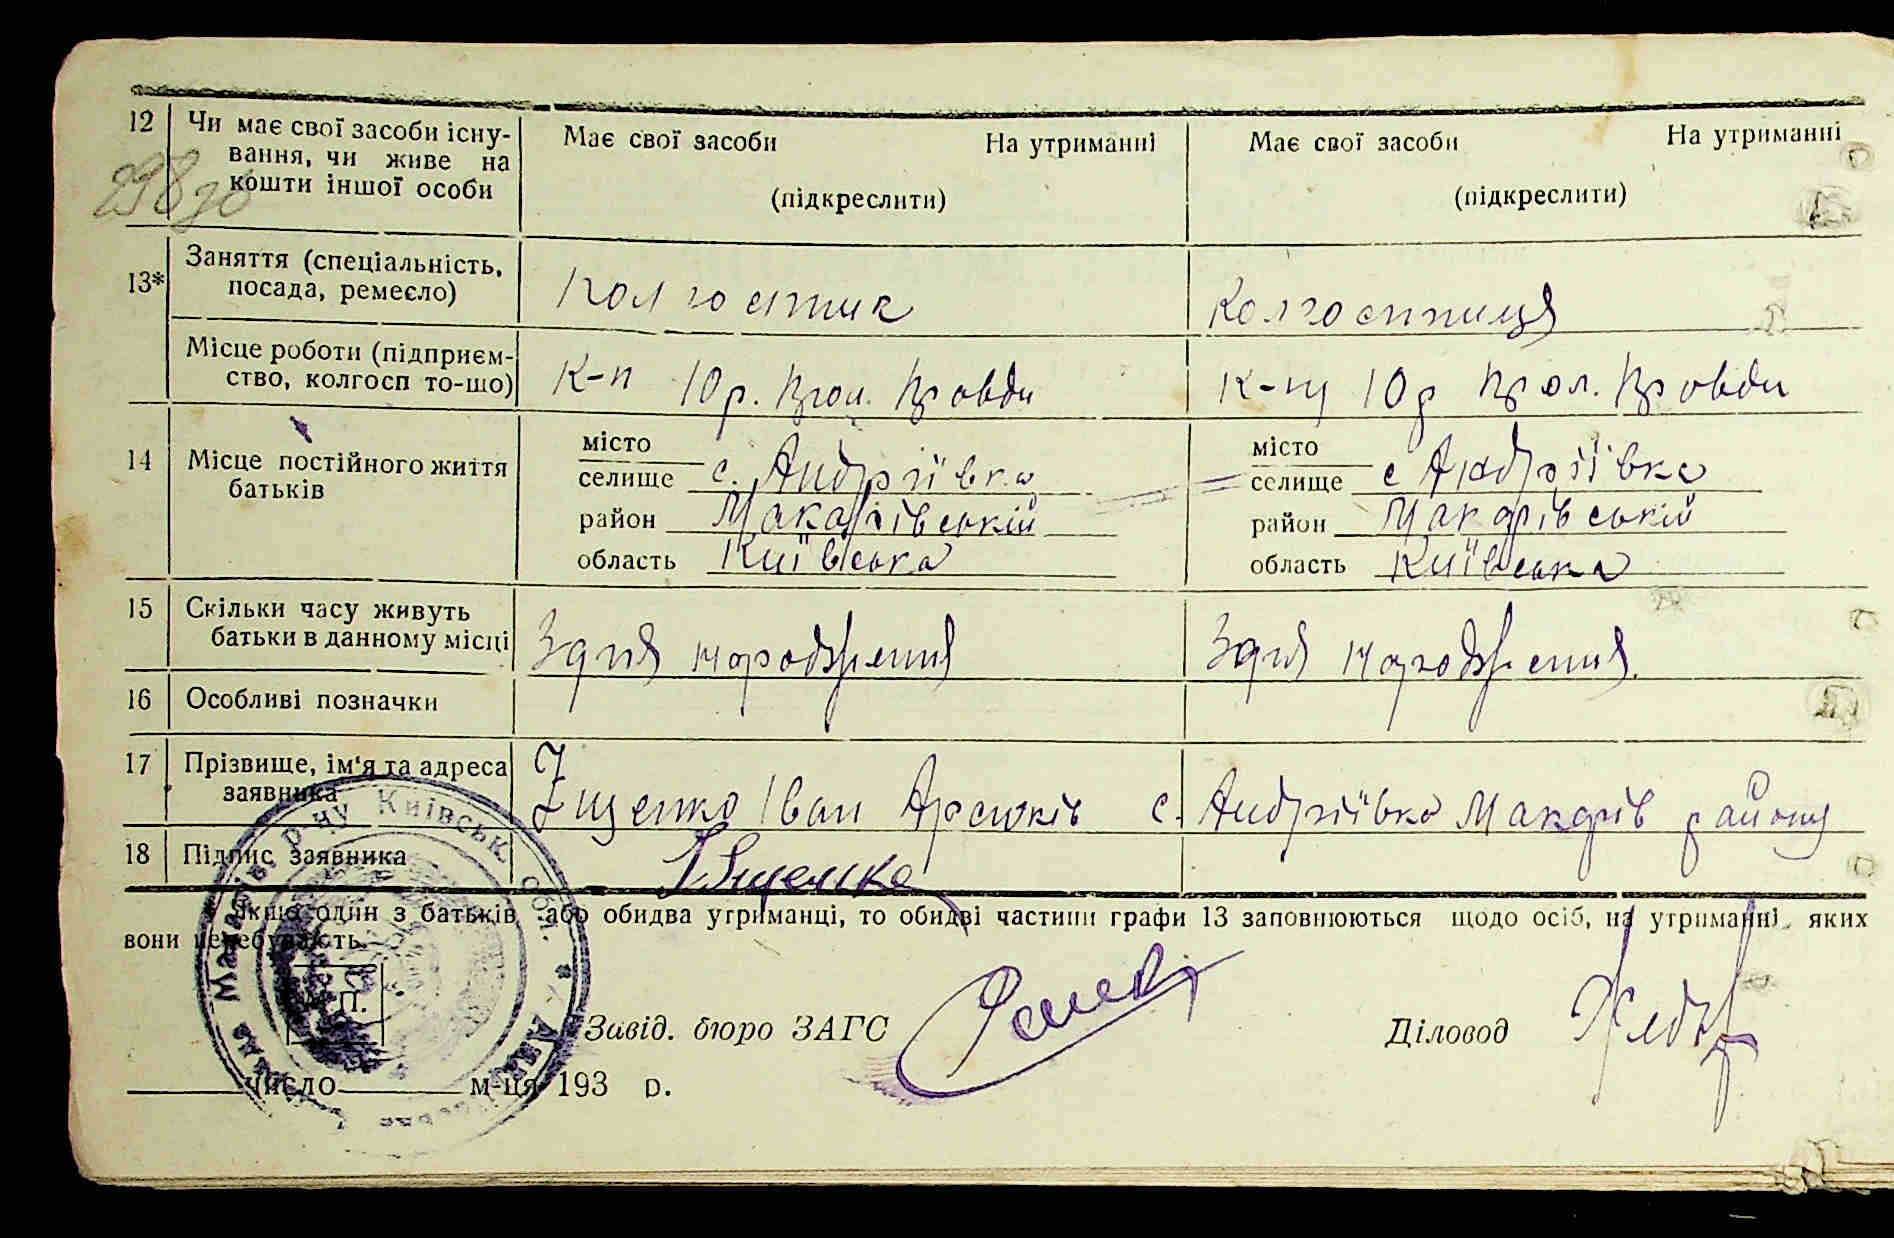 12 Чи має свої засоби існу- Має свої засоби На утриманні Має свої засоби На утриманні
вання, чи живе на
кошти іншої особи (підкреслити) (підкреслити)
298
13* Заняття (спеціальність,
посада, ремесло) Колгоспник Колгоспниця
Місце роботи (підприєм-
ство, колгосп то-що) К-п 10 р. Прол. Правди К-п 10 р Прол. Правди
14 Місце постійного життя
батьків
місто місто
селище с. Андріївка селище с Андріївка
район Макарівській район Макарівській
область Київська область Київська
15 Скільки часу живуть
батьки в данному місці З дня народження З дня народження.
16 Особливі позначки
17 Прізвище, ім'я та адреса
заявника Іщенко Іван Арсюків с. Андріївка Макарів району
18 Підпис заявника Іщенко
Якщо один з батьків, або обидва утриманці, то обидві частини графи 13 заповнюються щодо осіб, на утриманні яких
вони перебувають.
М.П.
Завід. бюро ЗАГС Діловод
число м-ця 193 р.
Макарів. р-ну Київськ. Обл.